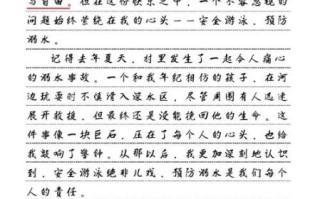 与自由。但在这份快乐之中,一个不容忽视的
问题始终萦绕在我的心头——安全游泳,预防
溺水。
记得去年夏天,村里发生了一起令人痛心
的溺水事故。一个和我年纪相仿的孩子,在河
边玩耍时不慎滑入深水区,尽管周围有人迅速
展开救援,但最终还是没能挽回他的生命。这
件事像一块巨石,压在了每个人的心头,也给
我敲响了警钟。从那以后,我更加深刻地认识
到,安全游泳绝非儿戏,预防溺水是我们每个
人的责任。